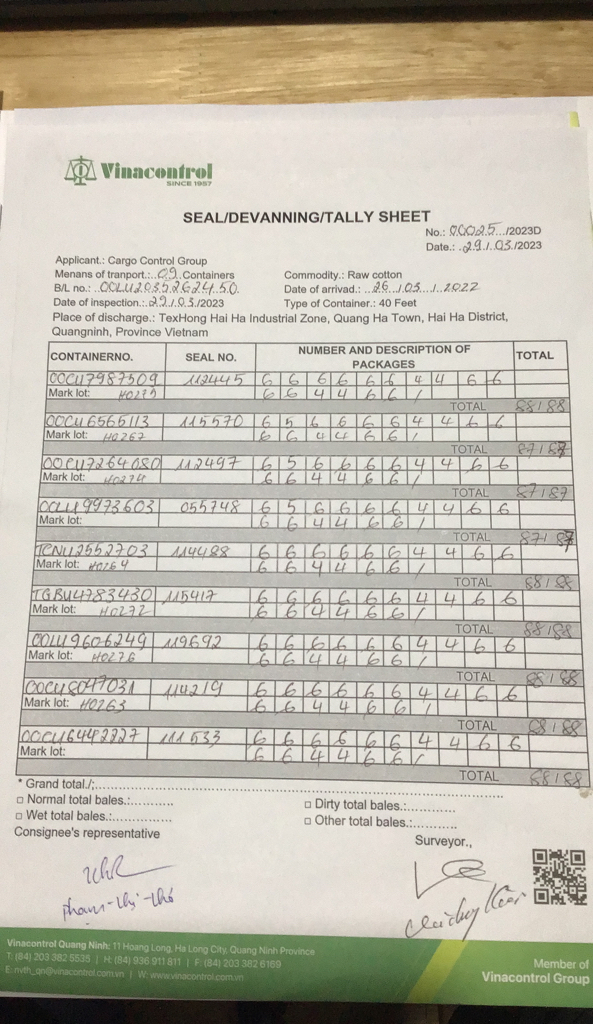 Vinacontrol
SINCE 1957
SEAL/DEVANNING/TALLY SHEET
No.: 00025 /2023D
Date.: 29 / 03 /2023
Applicant.: Cargo Control Group
Menans of tranport.: 09 Containers
Commodity.: Raw cotton
B/L no.: OOLU2035262450
Date of arrivad.: 26 / 03 / 2022
Date of inspection.: 29 / 03 /2023
Type of Container.: 40 Feet
Place of discharge.: TexHong Hai Ha Industrial Zone, Quang Ha Town, Hai Ha District,
Quangninh, Province Vietnam
CONTAINERNO. SEAL NO. NUMBER AND DESCRIPTION OF PACKAGES TOTAL
OOCU7987509 112445 6 6 6 6 6 6 4 4 6 6
Mark lot: H0275 6 6 4 4 6 6 /
TOTAL 88/88
OOCU6565113 115570 6 5 6 6 6 6 4 4 6 6
Mark lot: H0267 6 6 4 4 6 6 /
TOTAL 87/87
OOCU7264080 112497 6 5 6 6 6 6 4 4 6 6
Mark lot: H0274 6 6 4 4 6 6 /
TOTAL 87/87
OOLU9973603 055748 6 5 6 6 6 6 4 4 6 6
Mark lot: 6 6 4 4 6 6 /
TOTAL 87/87
TCNU2552703 114488 6 6 6 6 6 6 4 4 6 6
Mark lot: H0264 6 6 4 4 6 6 /
TOTAL 88/88
TGBU4783430 115417 6 6 6 6 6 6 4 4 6 6
Mark lot: H0272 6 6 4 4 6 6 /
TOTAL 88/88
OOLU9606249 119692 6 6 6 6 6 6 4 4 6 6
Mark lot: H0276 6 6 4 4 6 6 /
TOTAL 88/88
OOCU8047031 114219 6 6 6 6 6 6 4 4 6 6
Mark lot: H0263 6 6 4 4 6 6 /
TOTAL 88/88
OOCU6442227 111533 6 6 6 6 6 6 4 4 6 6
Mark lot: 6 6 4 4 6 6 /
TOTAL 88/88
* Grand total./:
□ Normal total bales.:
□ Dirty total bales.:
□ Wet total bales.:
□ Other total bales.:
Consignee's representative
Surveyor.,
Vinacontrol Quang Ninh: 11 Hoang Long, Ha Long City, Quang Ninh Province
T: (84) 203 382 5535 | H: (84) 936 911 811 | F: (84) 203 382 6169
E: nvth_qn@vinacontrol.com.vn | W: www.vinacontrol.com.vn
Member of
Vinacontrol Group